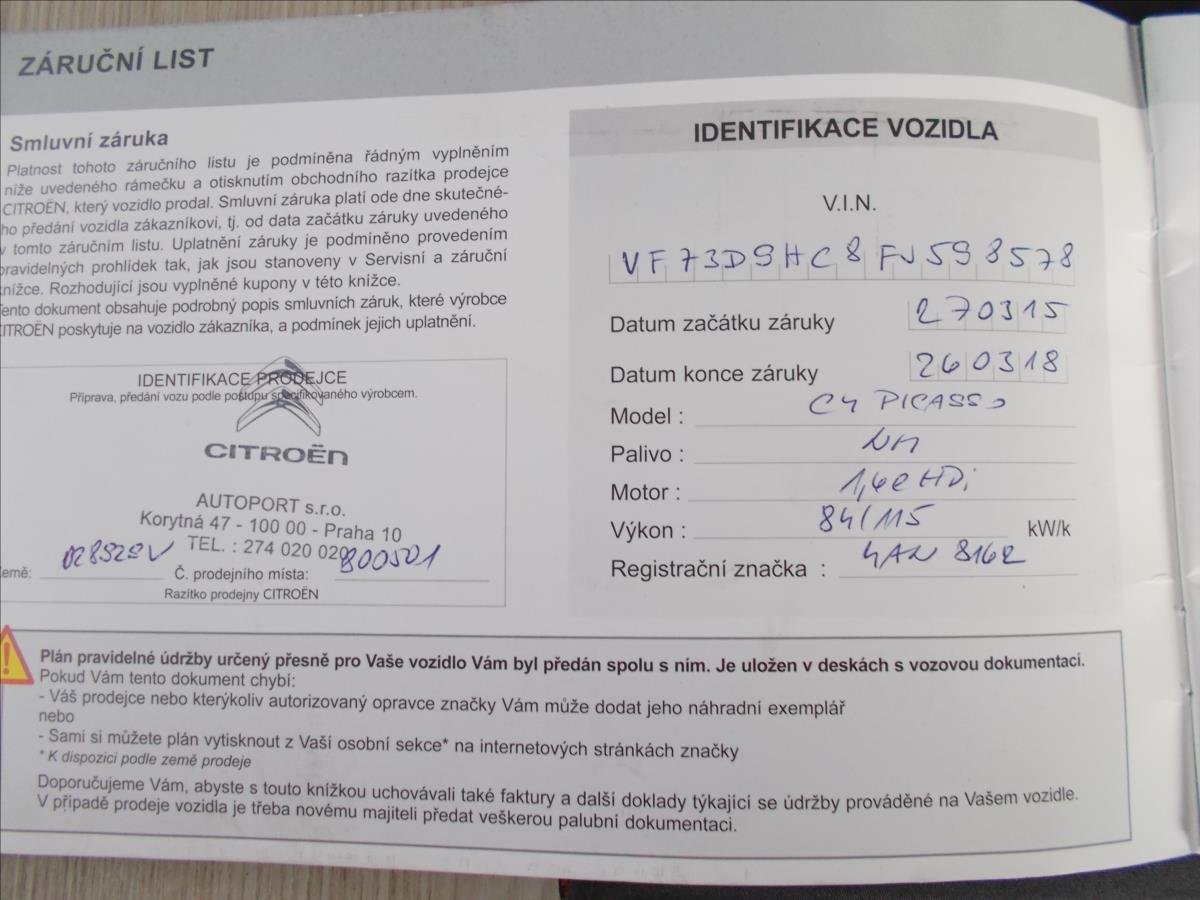 ZÁRUČNÍ LIST
Smluvní záruka
Platnost tohoto záručního listu je podmíněna řádným vyplněním
níže uvedeného rámečku a otisknutím obchodního razítka prodejce
CITROËN, který vozidlo prodal. Smluvní záruka platí ode dne skutečné-
ho předání vozidla zákazníkovi, tj. od data začátku záruky uvedeného
v tomto záručním listu. Uplatnění záruky je podmíněno provedením
pravidelných prohlídek tak, jak jsou stanoveny v Servisní a záruční
knížce. Rozhodující jsou vyplněné kupony v této knížce.
Tento dokument obsahuje podrobný popis smluvních záruk, které výrobce
CITROËN poskytuje na vozidlo zákazníka, a podmínek jejich uplatnění.
IDENTIFIKACE PRODEJCE
Příprava, předání vozu podle postupu specifikovaného výrobcem.
CITROËN
AUTOPORT s.r.o.
Korytná 47 - 100 00 - Praha 10
TEL. : 274 020 020
Země: 028529V Č. prodejního místa: 800501
Razítko prodejny CITROËN
IDENTIFIKACE VOZIDLA
V.I.N.
VF73D9HC8FJ598578
Datum začátku záruky 270315
Datum konce záruky 260318
Model : C4 PICASSO
Palivo : NM
Motor : 1,6e HDi
Výkon : 84/115 kW/k
Registrační značka : 4AN 8162
Plán pravidelné údržby určený přesně pro Vaše vozidlo Vám byl předán spolu s ním. Je uložen v deskách s vozovou dokumentací.
Pokud Vám tento dokument chybí:
- Váš prodejce nebo kterýkoliv autorizovaný opravce značky Vám může dodat jeho náhradní exemplář
nebo
- Sami si můžete plán vytisknout z Vaší osobní sekce* na internetových stránkách značky
* K dispozici podle země prodeje
Doporučujeme Vám, abyste s touto knížkou uchovávali také faktury a další doklady týkající se údržby prováděné na Vašem vozidle.
V případě prodeje vozidla je třeba novému majiteli předat veškerou palubní dokumentaci.